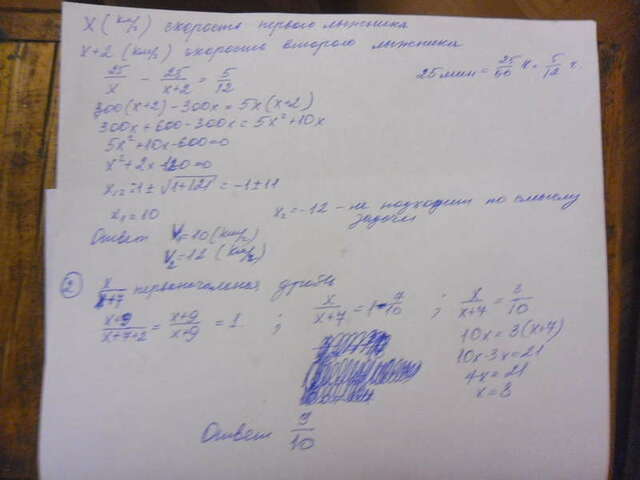 x (км/ч) скорость первого лыжника
x+2 (км/ч) скорость второго лыжника
25/x - 25/x+2 = 5/12
25 мин = 25/60 ч = 5/12 ч.
300(x+2)-300x=5x(x+2)
300x+600-300x=5x²+10x
5x²+10x-600=0
x²+2x-120=0
x₁,₂=-1±√1+121=-1±11
x₁=10
x₂=-12 - не подходит по смыслу задачи
Ответ V₁=10 (км/ч)
V₂=12 (км/ч)
② x/x+7 первоначальная дробь
x+9/x+7+2 = x+9/x+9 = 1 ; x/x+7 = 1-7/10 ; x/x+7 = 3/10
10x=3(x+7)
10x-3x=21
4x=21
x=3
Ответ 3/10